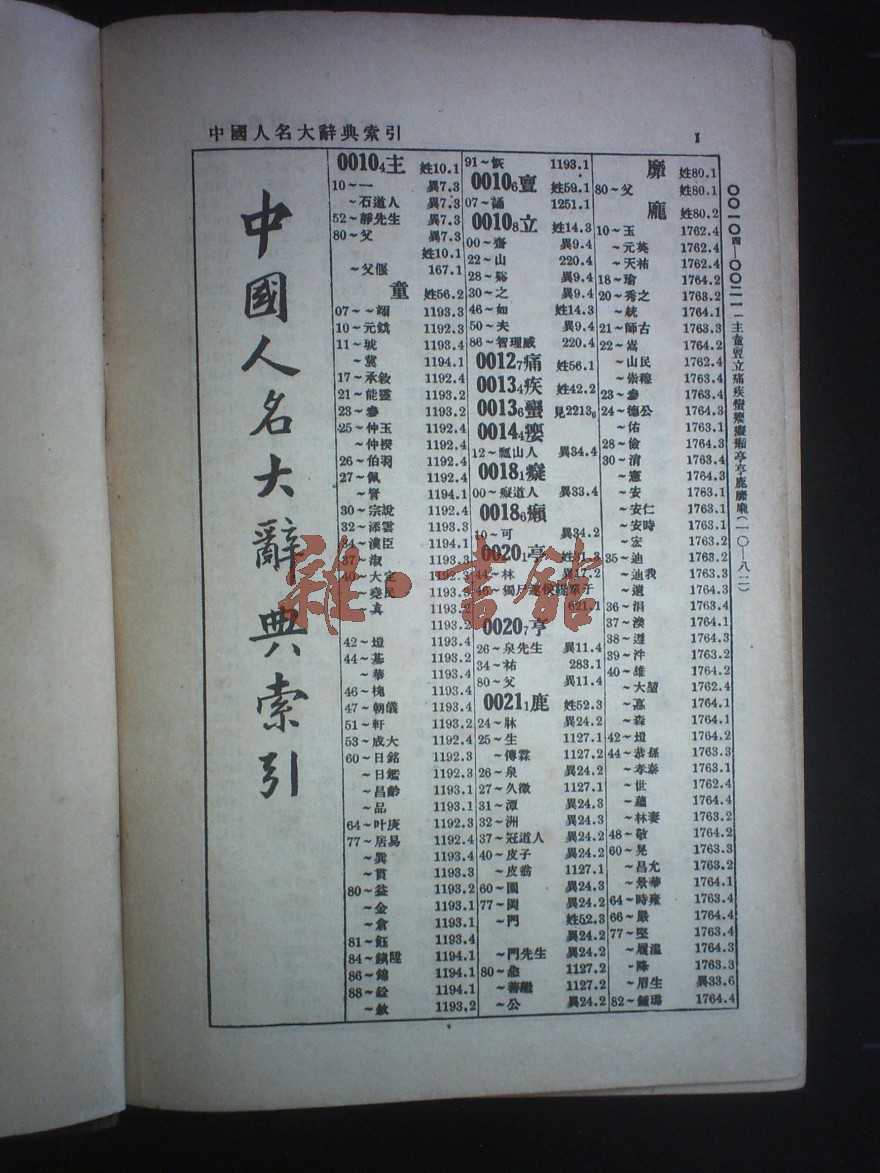 中國人名大辭典索引
1
中國人名大辭典索引
0010₄主 姓10.1
10～一 異7.3
～石道人 異7.3
52～靜先生 異7.3
80～父 異7.3
姓10.1
～父偃 167.1
童 姓56.2
07～～翊 1193.3
10～元鎮 1192.3
11～琥 1193.4
～冀 1194.1
17～承敘 1192.4
21～能靈 1193.2
23～參 1193.2
25～仲玉 1192.4
～仲揆 1192.4
26～伯羽 1192.4
27～佩 1192.4
1194.1
30～宗說 1192.4
32～添雲 1193.3
34～漢臣 1194.1
37～淑 1193.3
40～大定 1192.3
～堯民 1193.3
～真 1193.2
1193.2
42～壋 1193.4
44～基 1193.2
～華 1193.4
46～槐 1193.4
47～朝儀 1193.4
51～軒 1193.2
53～成大 1192.4
60～日銘 1192.3
～日鑑 1192.3
～昌齡 1193.1
～品 1193.1
64～叶庚 1192.3
77～居易 1192.4
～巽 1193.4
～貫 1193.3
80～益 1193.2
～金 1193.1
～倉 1193.1
81～鈺 1193.4
84～鎮陞 1194.1
86～錦 1194.1
88～銓 1194.1
～敘 1193.2
91～恢 1193.1
0010₆亶 姓59.1
07～誦 1251.1
0010₈立 姓14.3
00～齋 異9.4
22～山 220.4
28～谿 異9.4
30～之 異9.4
46～如 姓14.3
50～夫 異9.4
86～智理威 220.4
0012₇痛 姓56.1
0013₄疾 姓42.2
0013₆蠻 見2213₆
0014₄癭
12～瓢山人 異34.4
0018₁癡
00～癡道人 異33.4
0018₆癩
10～可 異34.2
0020₁亭 姓31.3
44～林 異17.2
46～獨尸逐侯鞮單于
621.1
0020₇亨
26～泉先生 異11.4
34～祐 283.1
80～父 異11.4
0021₁鹿 姓52.3
24～牀 異24.2
25～生 1127.1
～傳霖 1127.2
26～泉 異24.2
27～久徵 1127.1
31～潭 異24.3
32～洲 異24.3
37～冠道人 異24.2
40～皮子 異24.2
～皮翁 1127.1
60～園 異24.3
77～岡 異24.2
～門 姓52.3
異24.2
～門先生 異24.2
80～悆 1127.2
～善繼 1127.2
～公 異24.2
靡 姓80.1
80～父 姓80.1
龐 姓80.2
10～玉 1762.4
～元英 1762.4
～天祐 1762.4
18～瑜 1764.2
20～秀之 1763.2
～統 1764.1
21～師古 1763.3
22～嵩 1764.2
～山民 1762.4
～崇穆 1763.4
23～參 1763.4
24～德公 1764.3
～佑 1763.1
28～儉 1764.3
30～淯 1763.4
～憲 1764.3
～安 1763.1
～安仁 1763.1
～安時 1763.1
～宏 1763.2
35～迪 1763.2
～迪我 1763.3
～遺 1764.3
36～涓 1763.4
37～渙 1764.1
38～遵 1764.3
39～泮 1763.2
40～雄 1764.2
～大堃 1762.4
～嘉 1764.1
～森 1764.1
42～壋 1764.2
44～恭孫 1763.3
～孝泰 1763.1
～世 1762.4
～蘊 1764.4
～林妻 1763.2
48～敬 1764.2
60～晃 1763.3
～昌允 1763.2
～景華 1764.1
64～時雍 1763.4
66～嚴 1764.4
77～堅 1763.4
～履溫 1764.3
～降 1763.3
～眉生 異33.6
82～鍾璐 1764.4
〇〇一〇四—〇〇二一一主童亶立痛疾蠻癭癡癩亭亨鹿靡龐(一〇—八二)
雜·書館